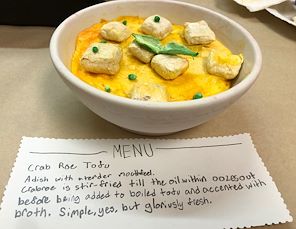 MENU
Crab Roe Tofu
A dish with a tender mouthfeel.
Crab roe is stir-fried till the oil within oozes out
before being added to boiled tofu and accented with
broth. Simple, yes, but gloriously fresh.